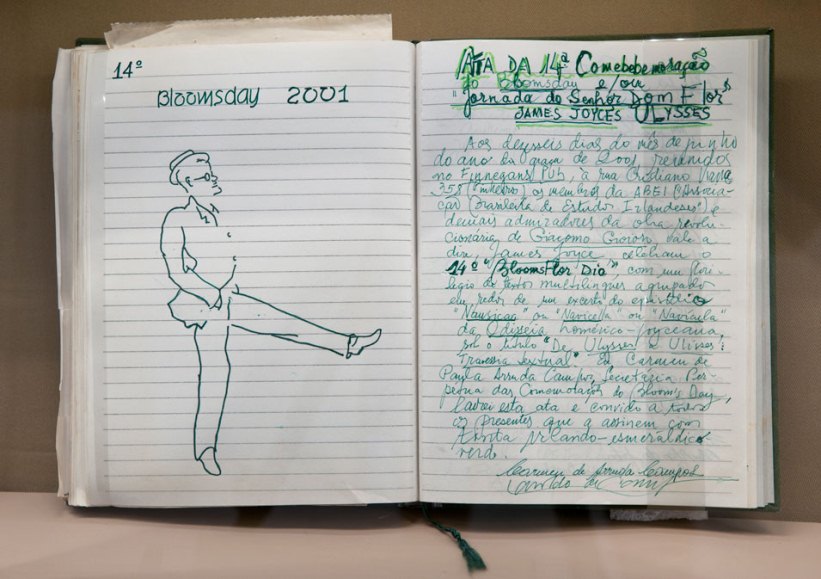 14º
Bloomsday 2001
ATA DA 14ª Comebebemoração
do Bloomsday e/ou
"Jornada do Senhor Dom Flor"
JAMES JOYCES ULYSSES
Aos dezesseis dias do mês de junho
do ano da graça de 2001, reunidos
no Finnegans Pub, à rua Cristiano Viana
358 (Pinheiros) os membros da ABEI (Associa-
ção Brasileira de Estudos Irlandeses) e
demais admiradores da obra revolu-
cionária de Giacomo Giocoso, vale a
dizer, James Joyce, celebram o
14º "BloomsFlor Dia" com um flori-
légio de textos multilíngues agrupado
em redor de um excerto do episódio
"Nausicaa" ou "Navicella" ou "Navicula"
da Odisseia homérico-joyceana,
sob o título "De Ulysses a Ulisses:
Travessia textual". Eu Carmen de
Paula Arruda Campos, Secretária Per-
pétua das Comemorações do Bloom's Day,
lavrei esta ata e convido a todos
os presentes que a assinem com
tinta irlando-esmeráldico
verde.
Carmen de Arruda Campos